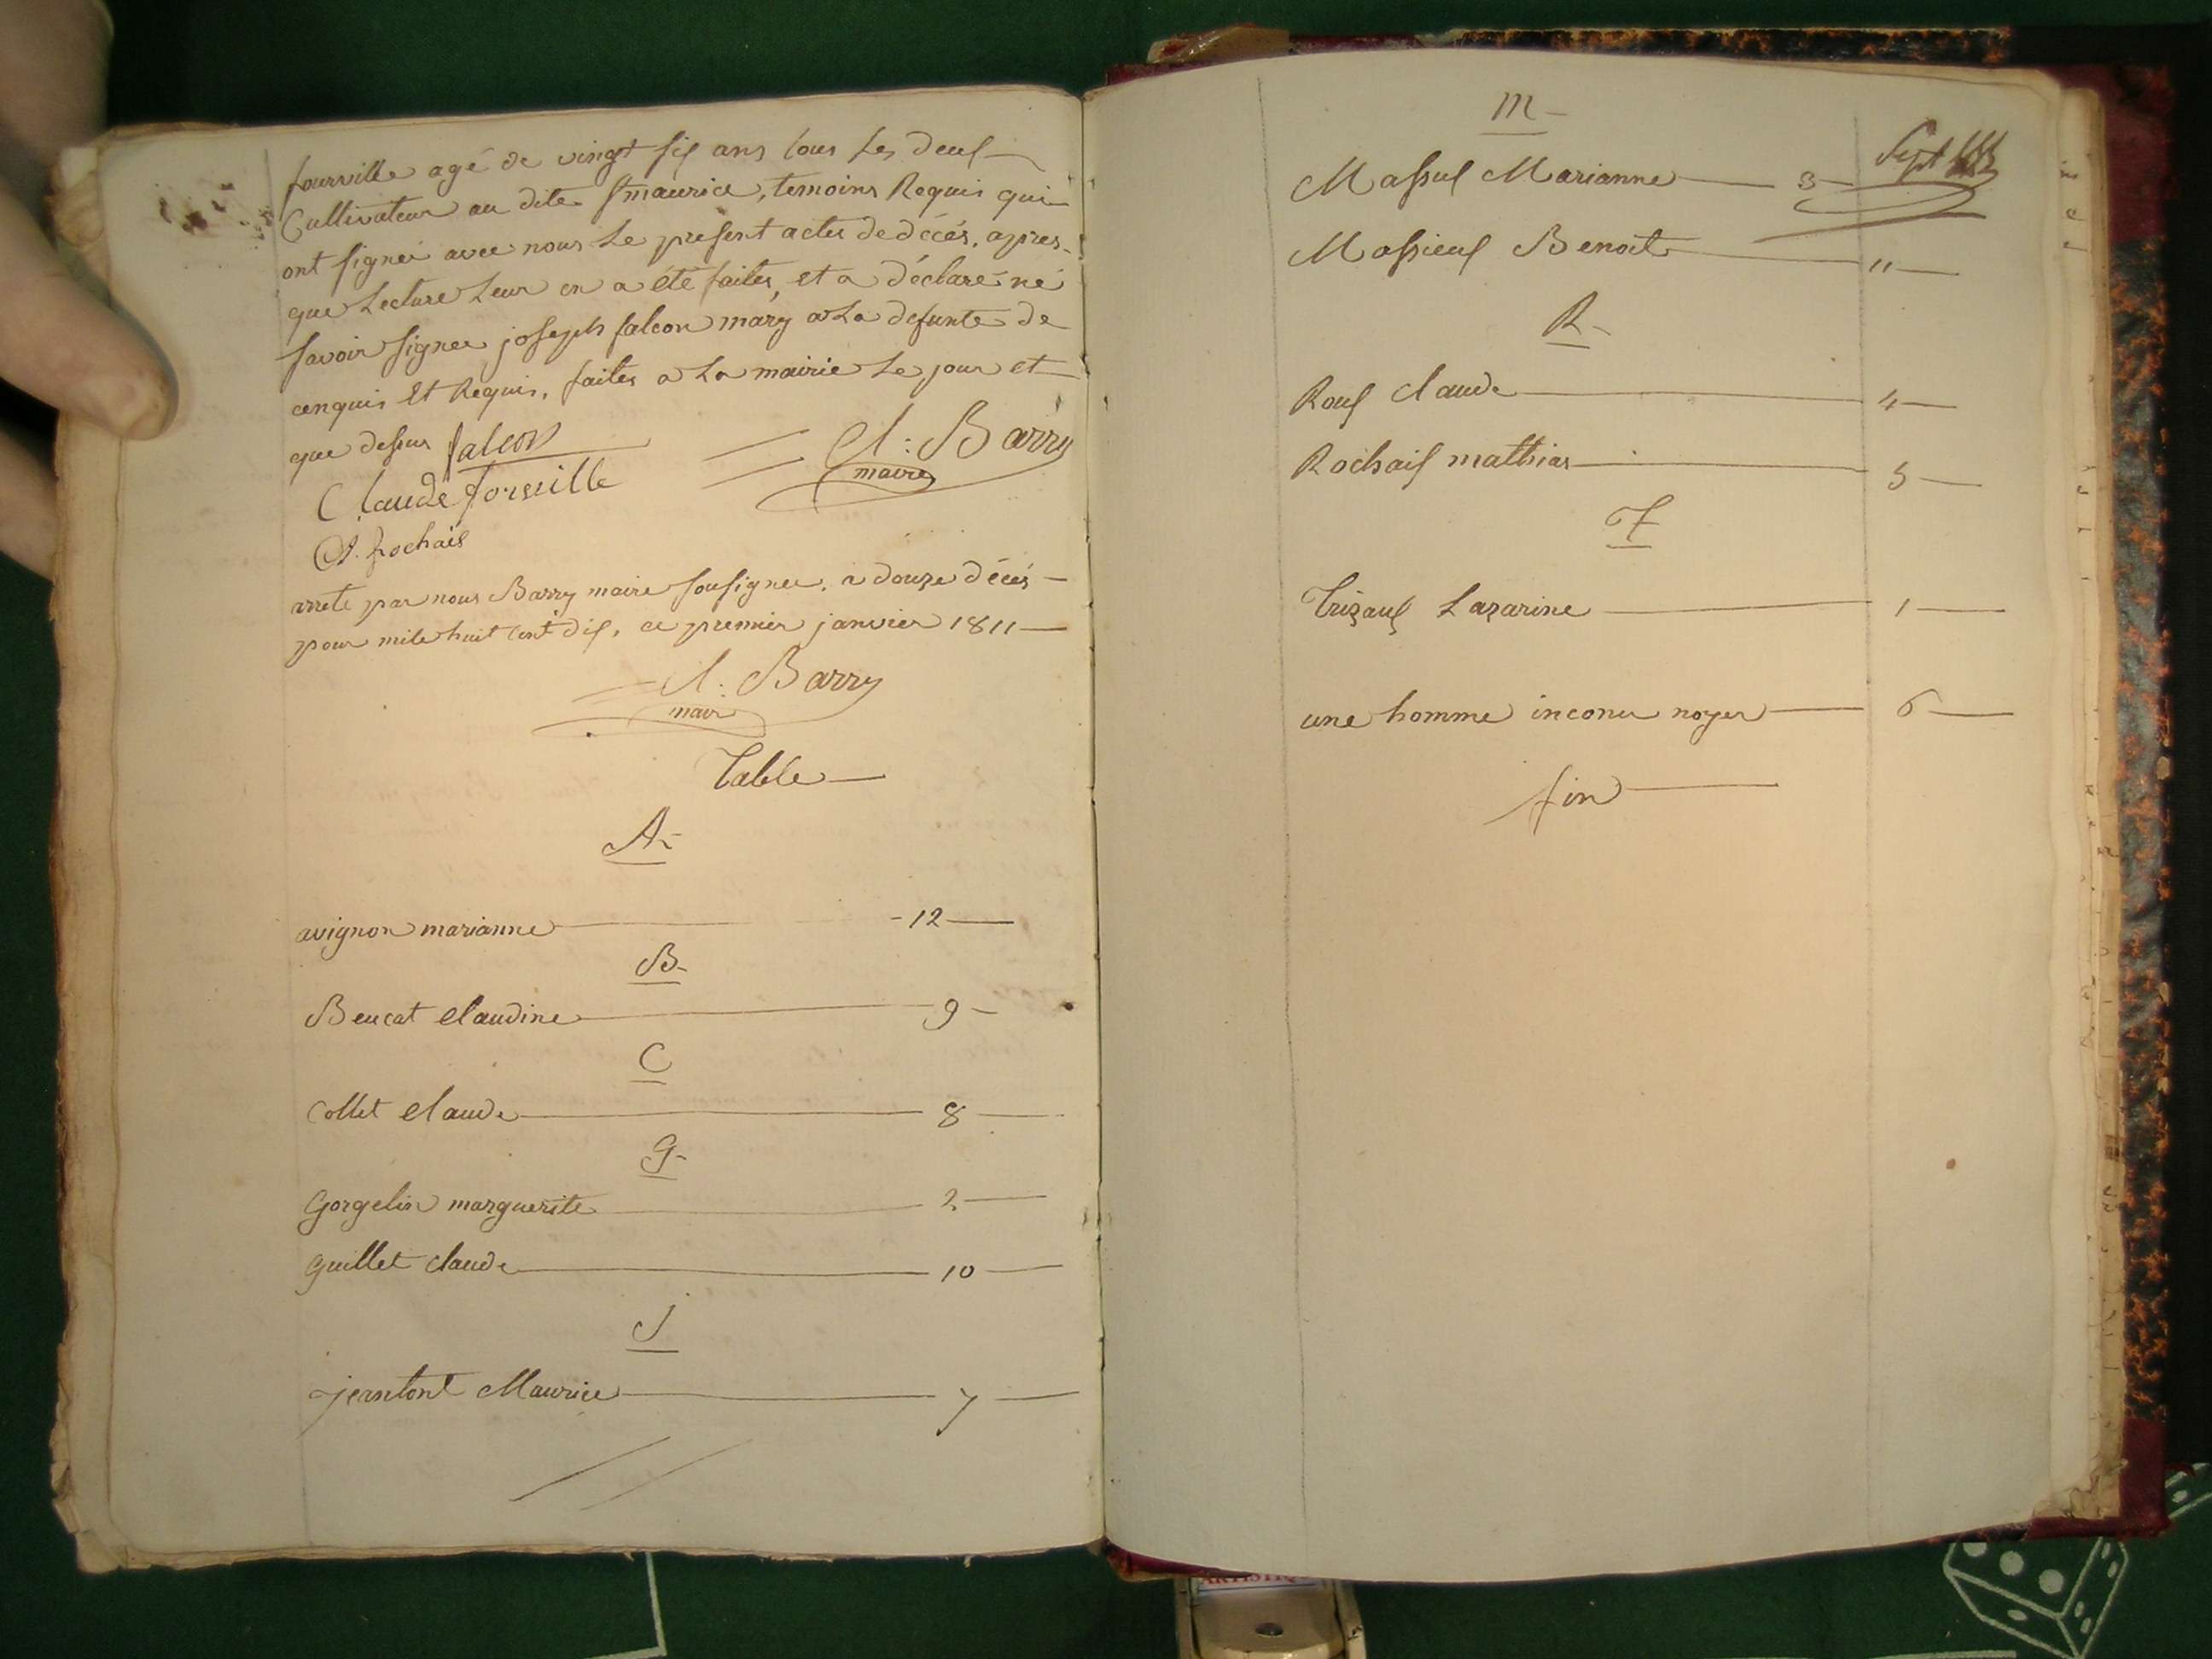 fourville agé de vingt six ans tous les deux
Cultivateur au dite St maurice, temoins Requis qui
ont signée avec nous le present actes de décès, apres
que Lecture Leur en a été faites, et a déclaré né
savoir signer joseph falcon mary a La defunte de
cenquis Et Requis, faites a La mairie Le jour et
que dessus falcon
Cl: Barry
maire
Claude forville
Cl. Rochais
arreté par nous Barry maire sousignee, a douze décés
pour mile huit cent dix, ce premier janvier 1811
Cl: Barry
mair
Table
A
avignon marianne 12
B
Beucat claudine 9
C
Collet claude 8
G
Gorgelin marguerite 2
Guillet claude 10
J
jeantont Maurice 7
M
Sept
Massux Marianne 3
Massieux Benoit 11
R
Roux claude 4
Rochaix mathias 5
T
Trizaux Lazarine 1
une homme inconu noyer 6
fin
ARTISTIQ